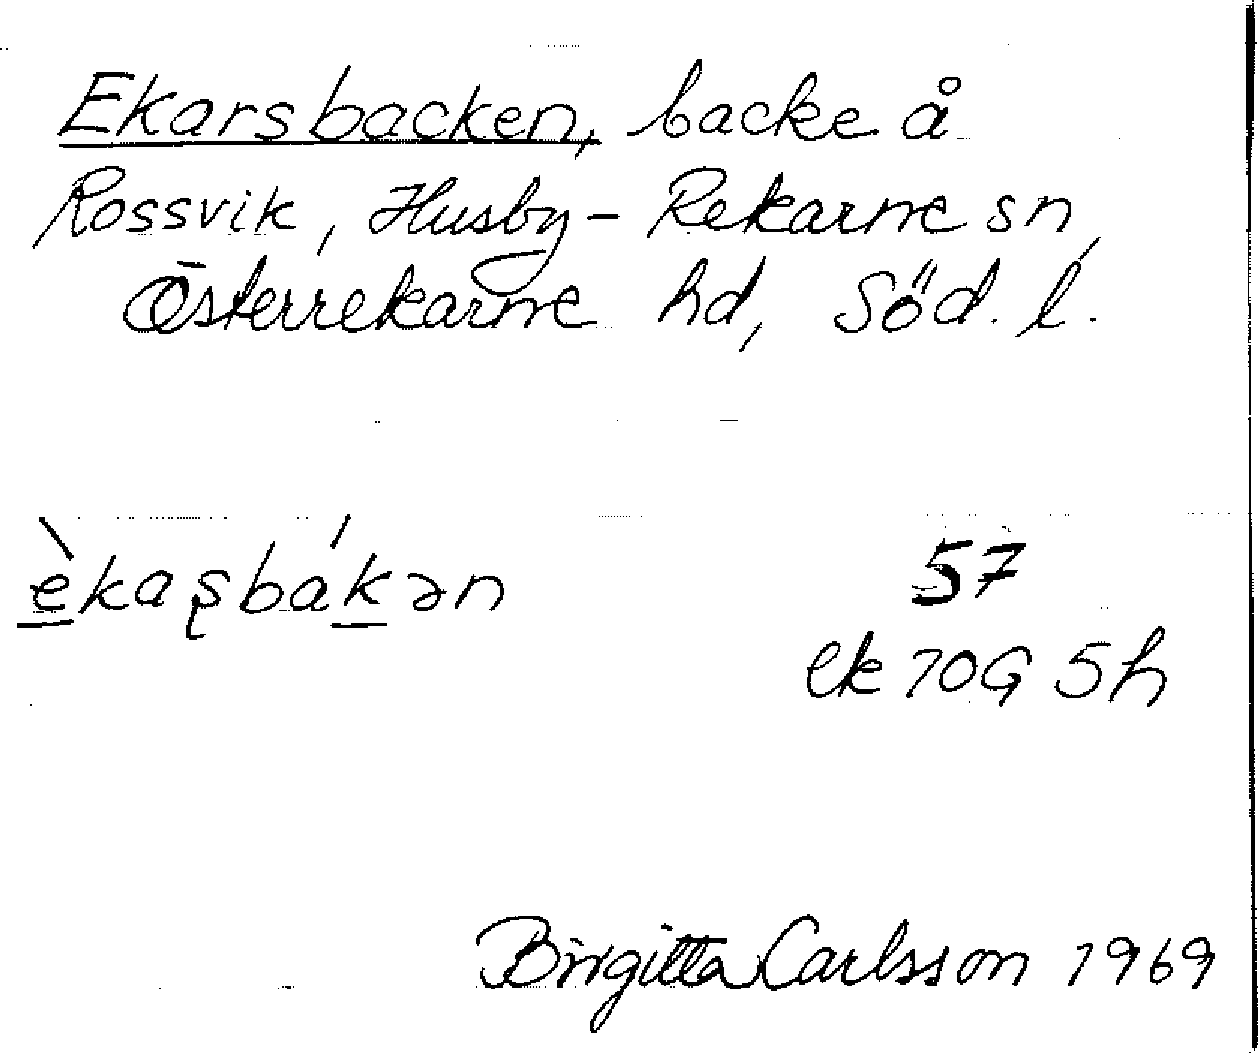 Ekarsbacken, backe å
Rossvik, Husby-Rekarne sn,
Österrekarne hd, Söd. l.
èkaʂbákən
57
ek 10G 5h
Birgitta Carlsson 1969